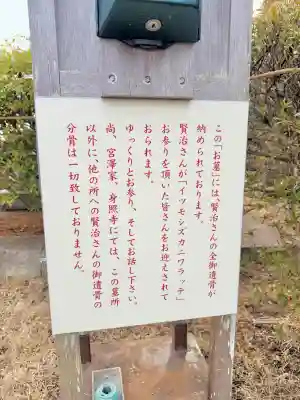 この「お墓」には、賢治さんの全御遺骨が
納められております。
賢治さんが「イツモシズカニワラッテ」
お参りを頂いた皆さんをお迎えされて
おられます。
ゆっくりとお参り、そしてお話し下さい。
尚、宮澤家、身照寺にては、この墓所
以外に、他の所への賢治さんの御遺骨の
分骨は一切致しておりません。